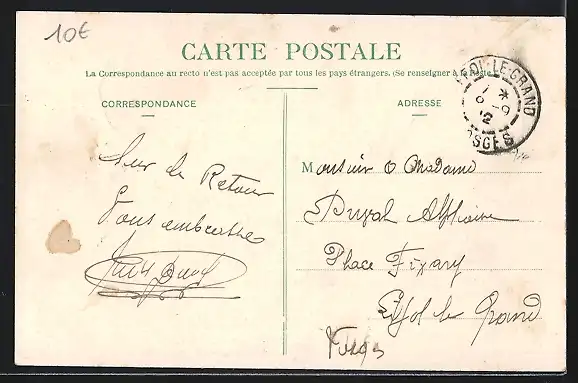 10€
CARTE POSTALE
La Correspondance au recto n'est pas acceptée par tous les pays étrangers. (Se renseigner à la Poste
CORRESPONDANCE
ADRESSE
OL-LE-GRAND
OSGES
de Retour
Vous embrasse
Monsieur & Madame
Duval Alphonse
Place
le Grand
Vosges